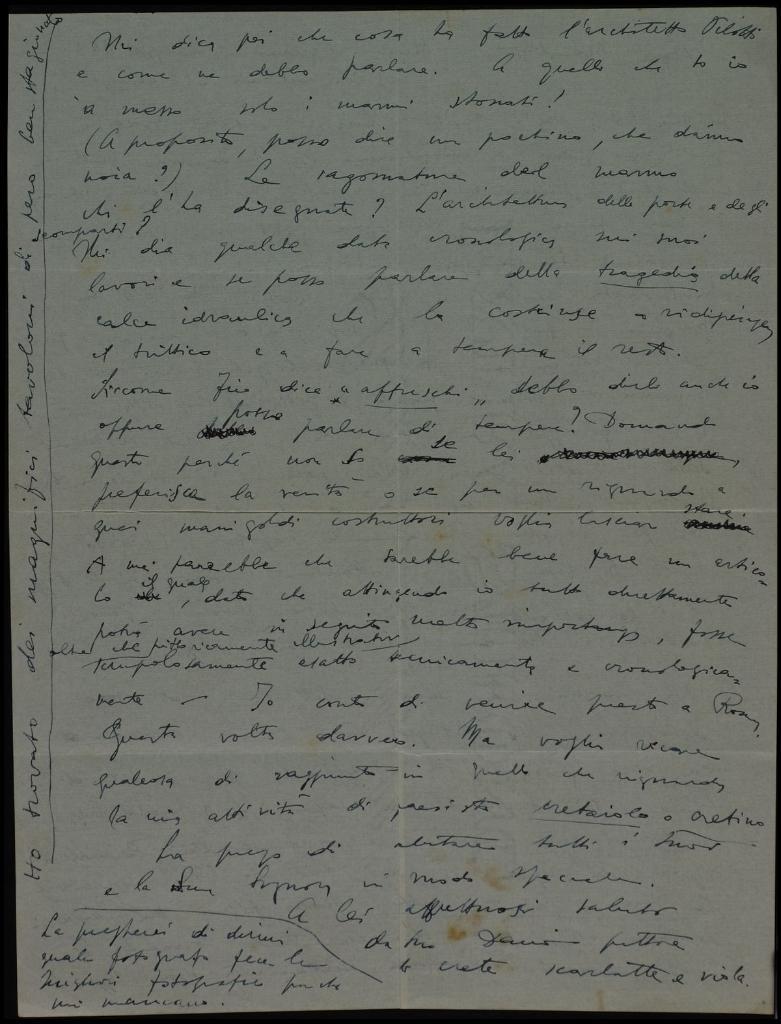 Mi dica poi che cosa ha fatto l'architetto
e come ne debbo parlare. A quello che so io
'a messo solo i marmi stonati!
(A proposito, posso dire un pochino, che danno
noia?) Le sagomature del marmo
chi l'ha disegnate? L'architettura delle porte e degli
scomparti?
Mi dia qualche data cronologica sui suoi
lavori e se posso parlare della tragedia della
calce idraulica che la costrinse a ridipingere
il trittico e a fare a tempera il resto.
Siccome dice "affreschi" debbo dirlo anch'io
oppure posso parlare di tempera? Domando
questo perché non so se lei
preferisca la verità o se per un riguardo a
quei manigoldi costruttori voglia lasciar stare
A me parrebbe che sarebbe bene fare un artico=
lo il quale, dato che attingendo io tutto direttamente
potrà avere in seguito molta importanza, fosse
oltre che pittoricamente illustrativo
scrupolosamente esatto tecnicamente e cronologica=
mente — Io conto di venire presto a Roma,
Questa volta davvero. Ma voglio recare
qualcosa di raggiunto in quello che riguarda
la mia attività di cretaiolo o cretino
La prego di salutare tutti i suoi
e la Sua Signora in modo speciale.
A lei affettuosi saluti
dal suo pittore
le crete scarlatte e viola.
La pregherei di dirmi
quale fotografo fece le
migliori fotografie perché
mi mancano.
Ho trovato dei magnifici tavoloni di pero ben stagionato